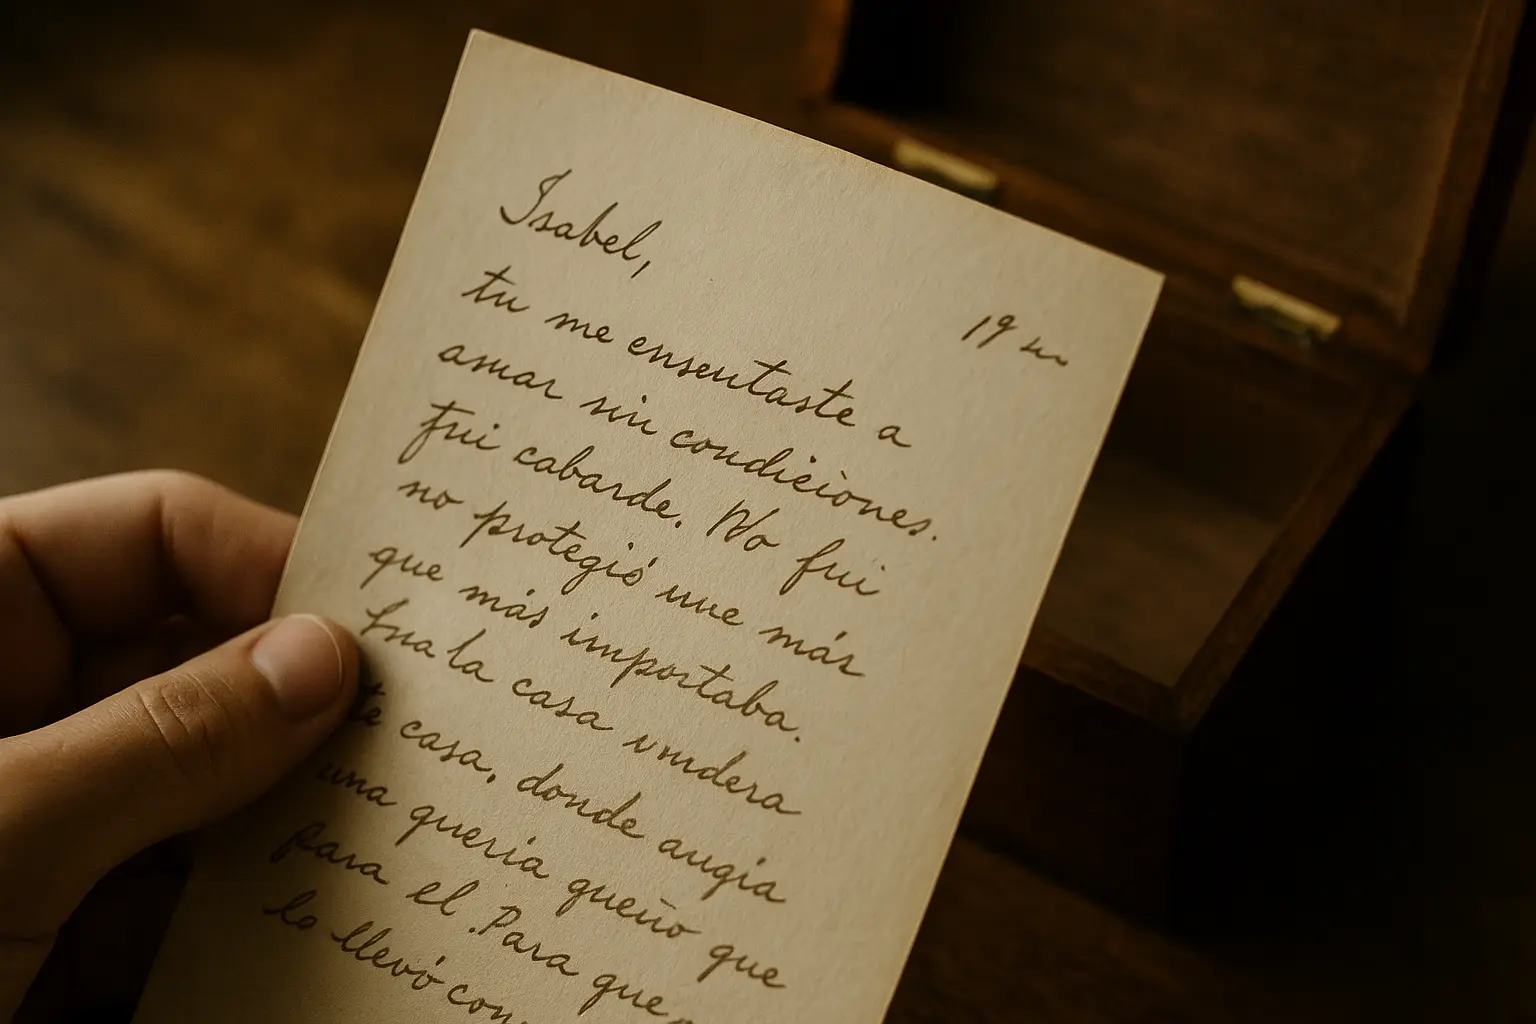 Isabel,
19
tu me enseutaste a
amar sin condiciones.
fui cabarde. No fui
no protegió une más
que más importaba.
la casa vmdera
te casa, donde augia
una queria queño que
para el. Para que
lo llevó con